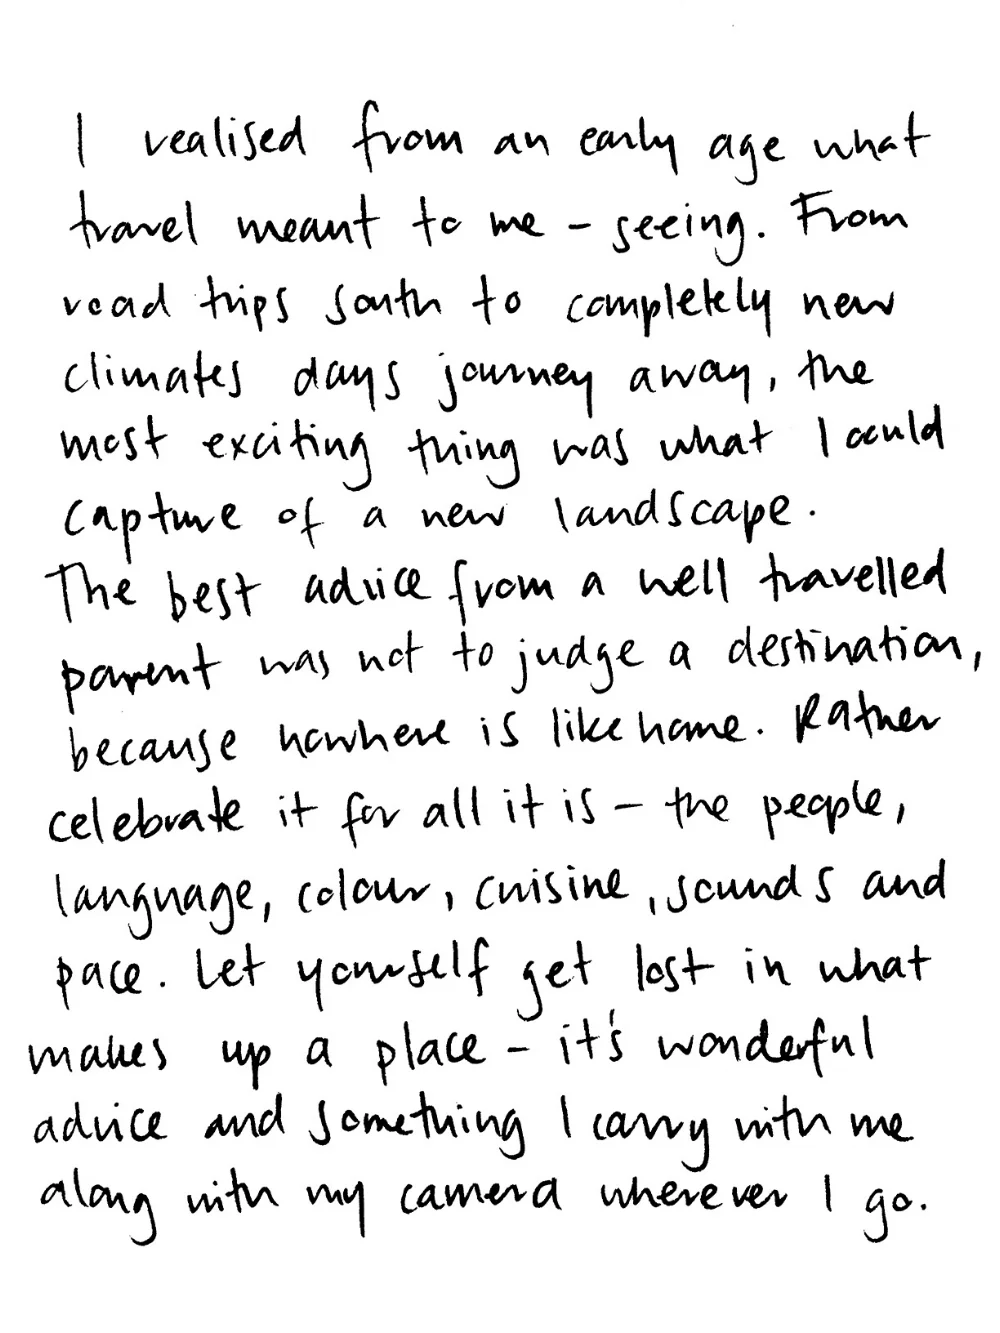 I realised from an early age what
travel meant to me - seeing. From
road trips south to completely new
climates days journey away, the
most exciting thing was what I could
capture of a new landscape.
The best advice from a well travelled
parent was not to judge a destination,
because nowhere is like home. Rather
celebrate it for all it is - the people,
language, colour, cuisine, sounds and
pace. Let yourself get lost in what
makes up a place - it's wonderful
advice and something I carry with me
along with my camera wherever I go.